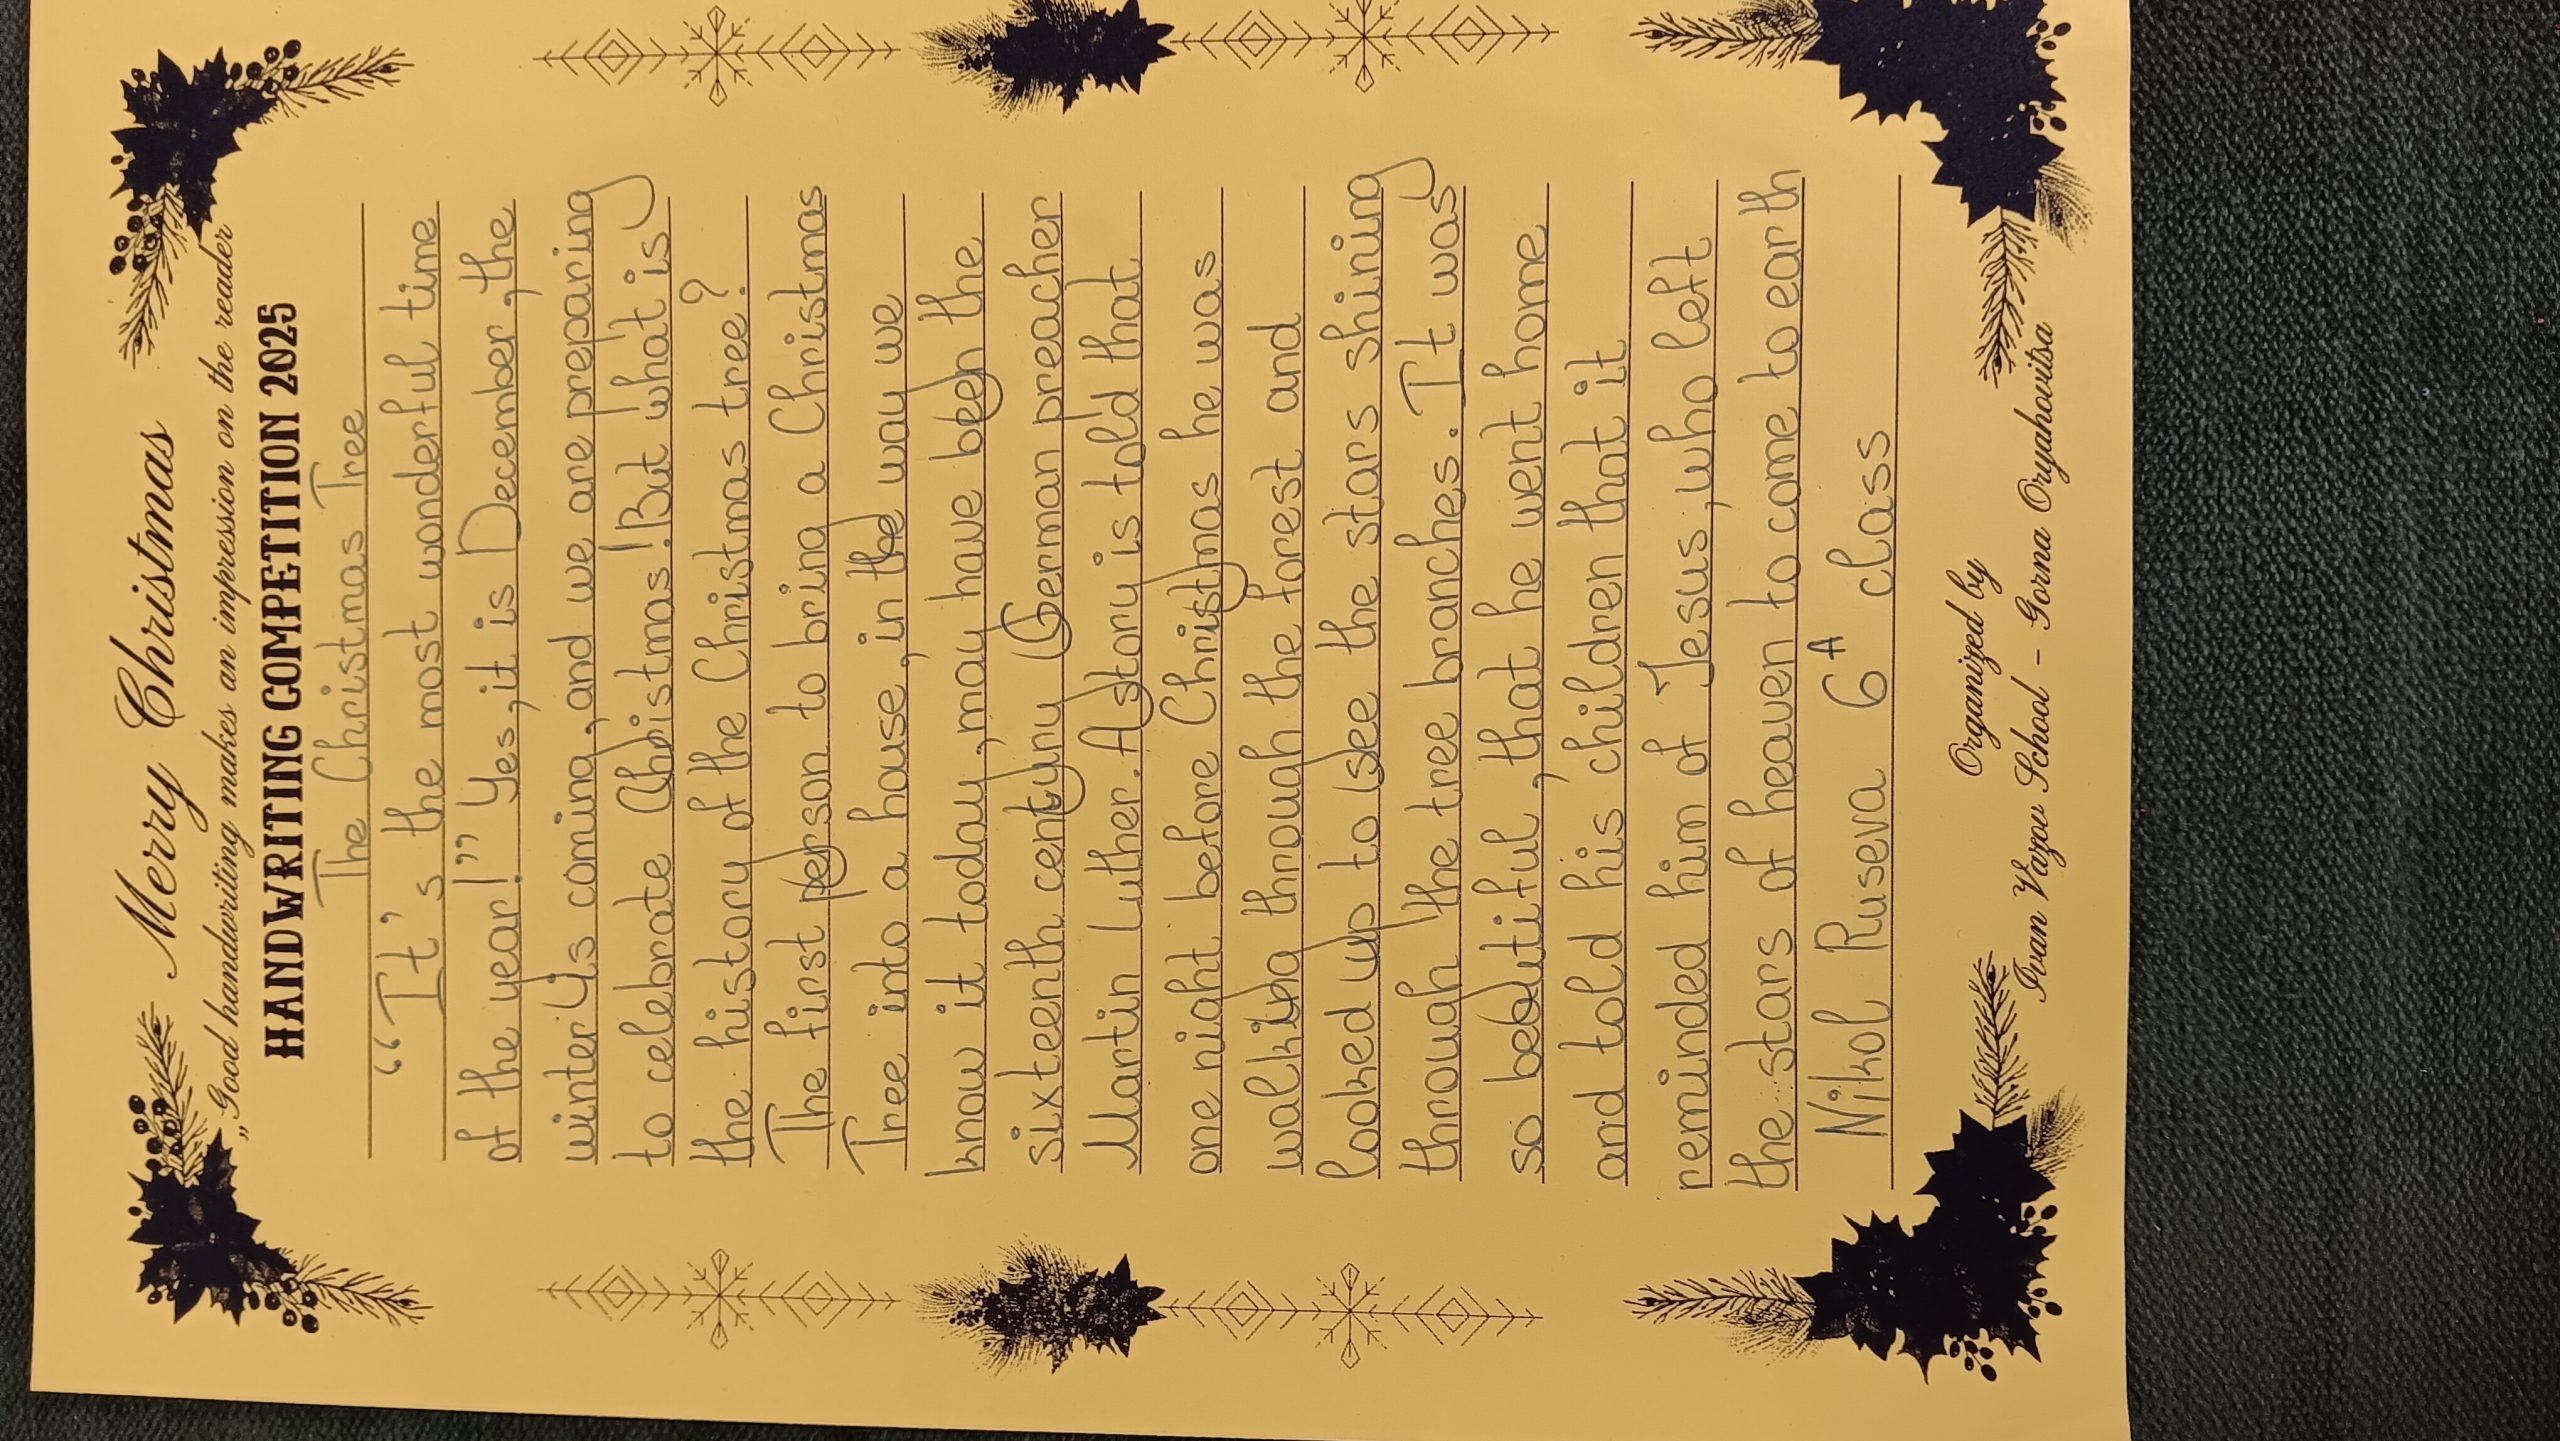 Merry Christmas
„Good handwriting makes an impression on the reader
HANDWRITING COMPETITION 2025
The Christmas Tree
“It's the most wonderful time
of the year!” Yes, it is December, the
winter is coming, and we are preparing
to celebrate Christmas! But what is
the history of the Christmas tree?
The first person to bring a Christmas
Tree into a house, in the way we
know it today, may have been the
sixteenth century German preacher
Martin Luther. A story is told that
one night before Christmas he was
walking through the forest and
looked up to see the stars shining
through the tree branches. It was
so beautiful, that he went home
and told his children that it
reminded him of Jesus, who left
the stars of heaven to come to earth
Nikol Ruseva 6A class
Organized by
Ivan Vazov School - Gorna Oryahovitsa